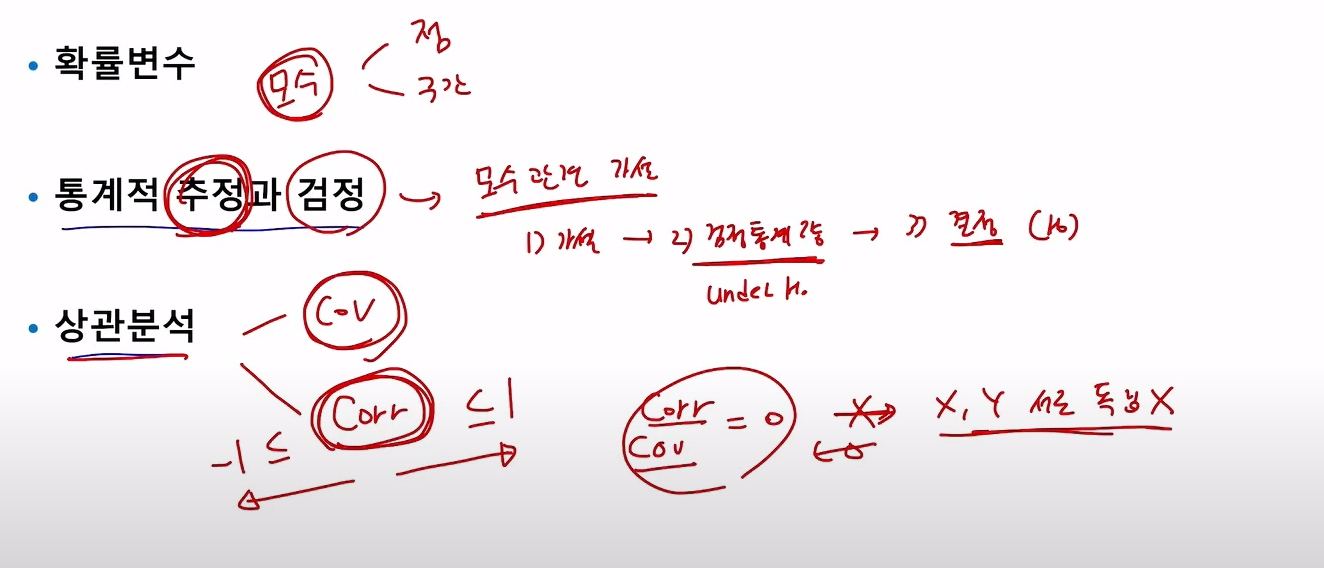 점
• 확률변수
모수
구간
• 통계적 추정과 검정 → 모수 관련 가설
1) 가설 → 2) 검정통계량 → 3) 결정 (H₀)
under H₀
• 상관분석
Cov
-1 ≤ Corr ≤ 1
Corr
Cov = 0
X
X, Y 서로 독립 X